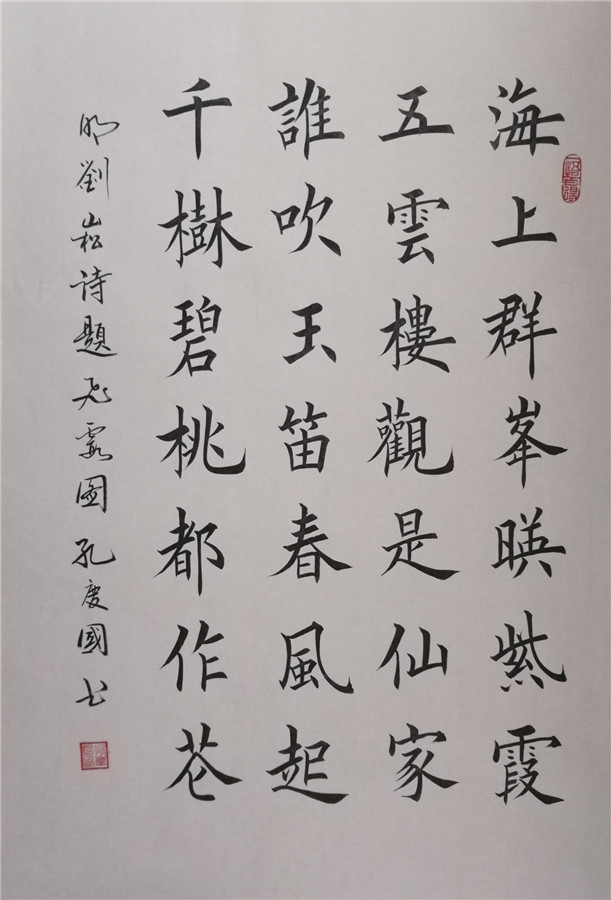 海上群峯暎紫霞
五雲樓觀是仙家
誰吹玉笛春風起
千樹碧桃都作花
明劉崧诗題飞霞图孔度國书